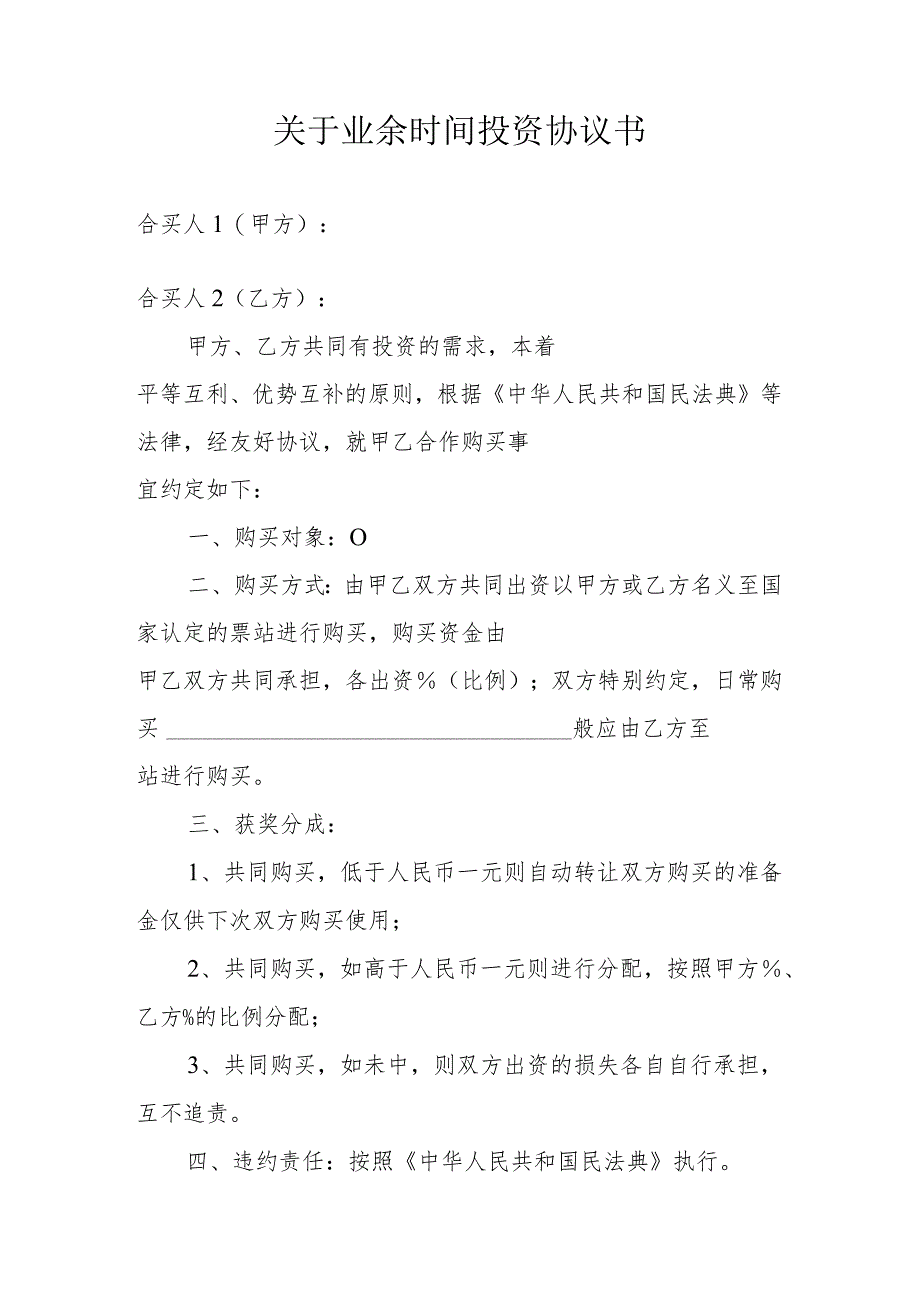 关于业余时间投资协议书
合买人1（甲方）：
合买人2（乙方）：
甲方、乙方共同有投资的需求，本着
平等互利、优势互补的原则，根据《中华人民共和国民法典》等
法律，经友好协议，就甲乙合作购买事
宜约定如下：
一、购买对象：O
二、购买方式：由甲乙双方共同出资以甲方或乙方名义至国
家认定的票站进行购买，购买资金由
甲乙双方共同承担，各出资%（比例）；双方特别约定，日常购
买 ___________________________________般应由乙方至
站进行购买。
三、获奖分成：
1、共同购买，低于人民币一元则自动转让双方购买的准备
金仅供下次双方购买使用；
2、共同购买，如高于人民币一元则进行分配，按照甲方%、
乙方%的比例分配；
3、共同购买，如未中，则双方出资的损失各自自行承担，
互不追责。
四、违约责任：按照《中华人民共和国民法典》执行。